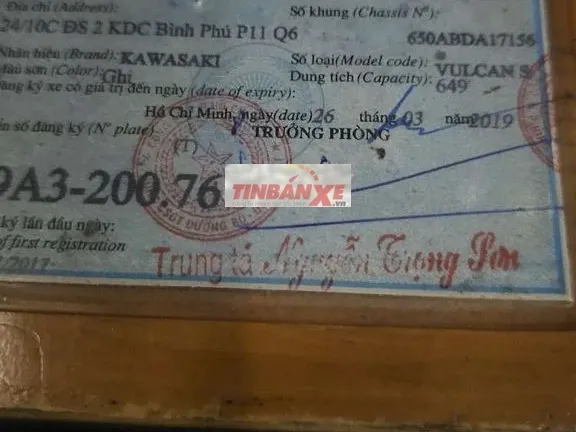 Địa chỉ (Address):
Số khung (Chassis Nº):
24/10C ĐS 2 KDC Bình Phú P11 Q6
650ABDA17156
Nhãn hiệu (Brand): KAWASAKI
Số loại (Model code): VULCAN S
Màu sơn (Color): Ghi
Dung tích (Capacity): 649
đăng ký xe có giá trị đến ngày (date of expiry):
Hồ Chí Minh, ngày (date) 26 tháng 03 năm 2019
số đăng ký (Nº plate)
TRƯỞNG PHÒNG
(T)
9A3-200.76
TINBANXE.vn
CSGT ĐƯỜNG BỘ
ký lần đầu ngày:
of first registration
2017
Trung tá Nguyễn Trọng Sơn